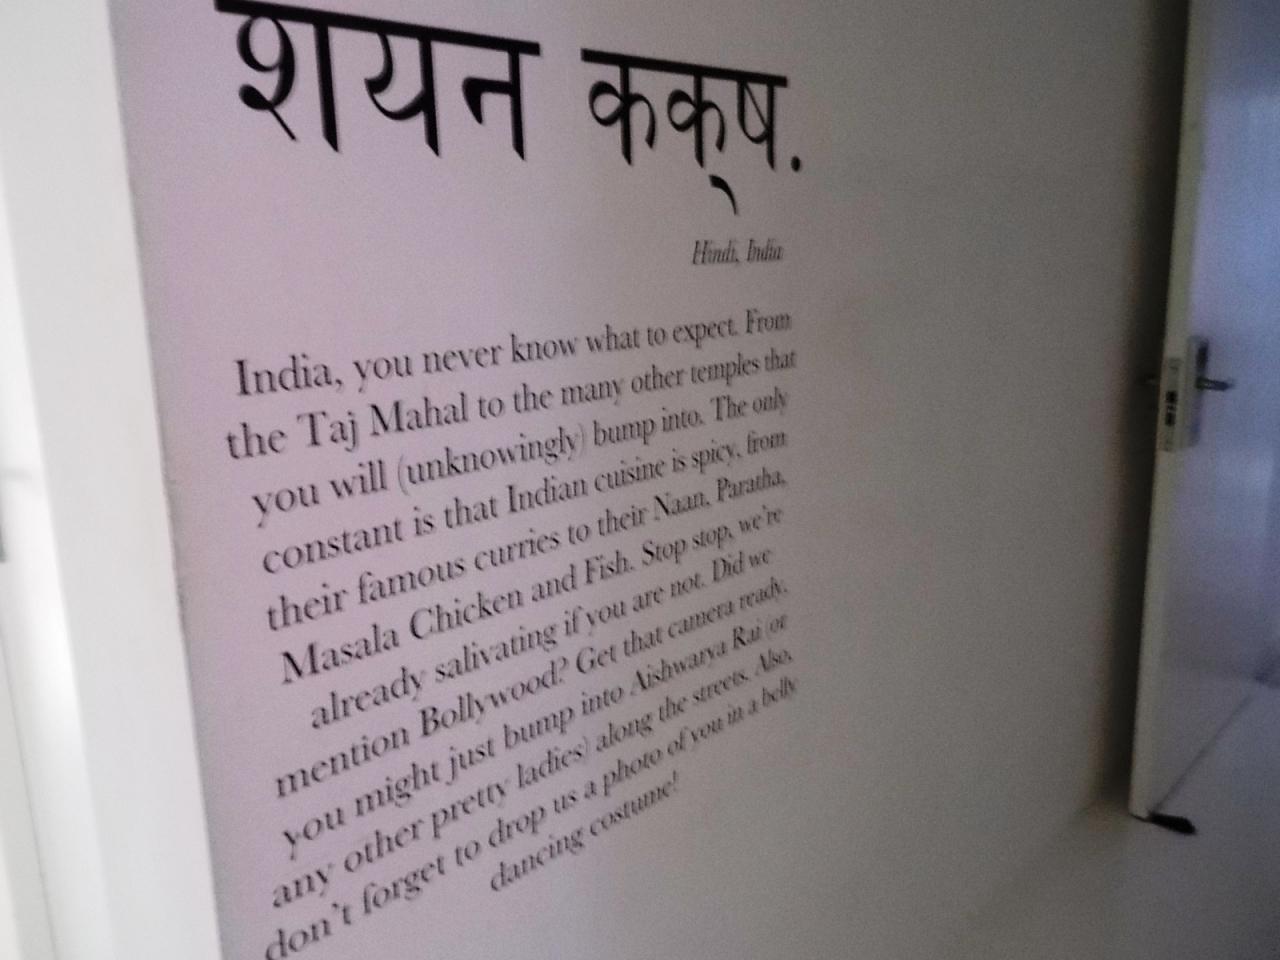 शयन कक्ष.
Hindi, India
India, you never know what to expect. From
the Taj Mahal to the many other temples that
you will (unknowingly) bump into. The only
constant is that Indian cuisine is spicy, from
their famous curries to their Naan, Paratha,
Masala Chicken and Fish. Stop stop, we're
already salivating if you are not. Did we
mention Bollywood? Get that camera ready,
you might just bump into Aishwarya Rai (or
any other pretty ladies) along the streets. Also,
don't forget to drop us a photo of you in a belly
dancing costume!